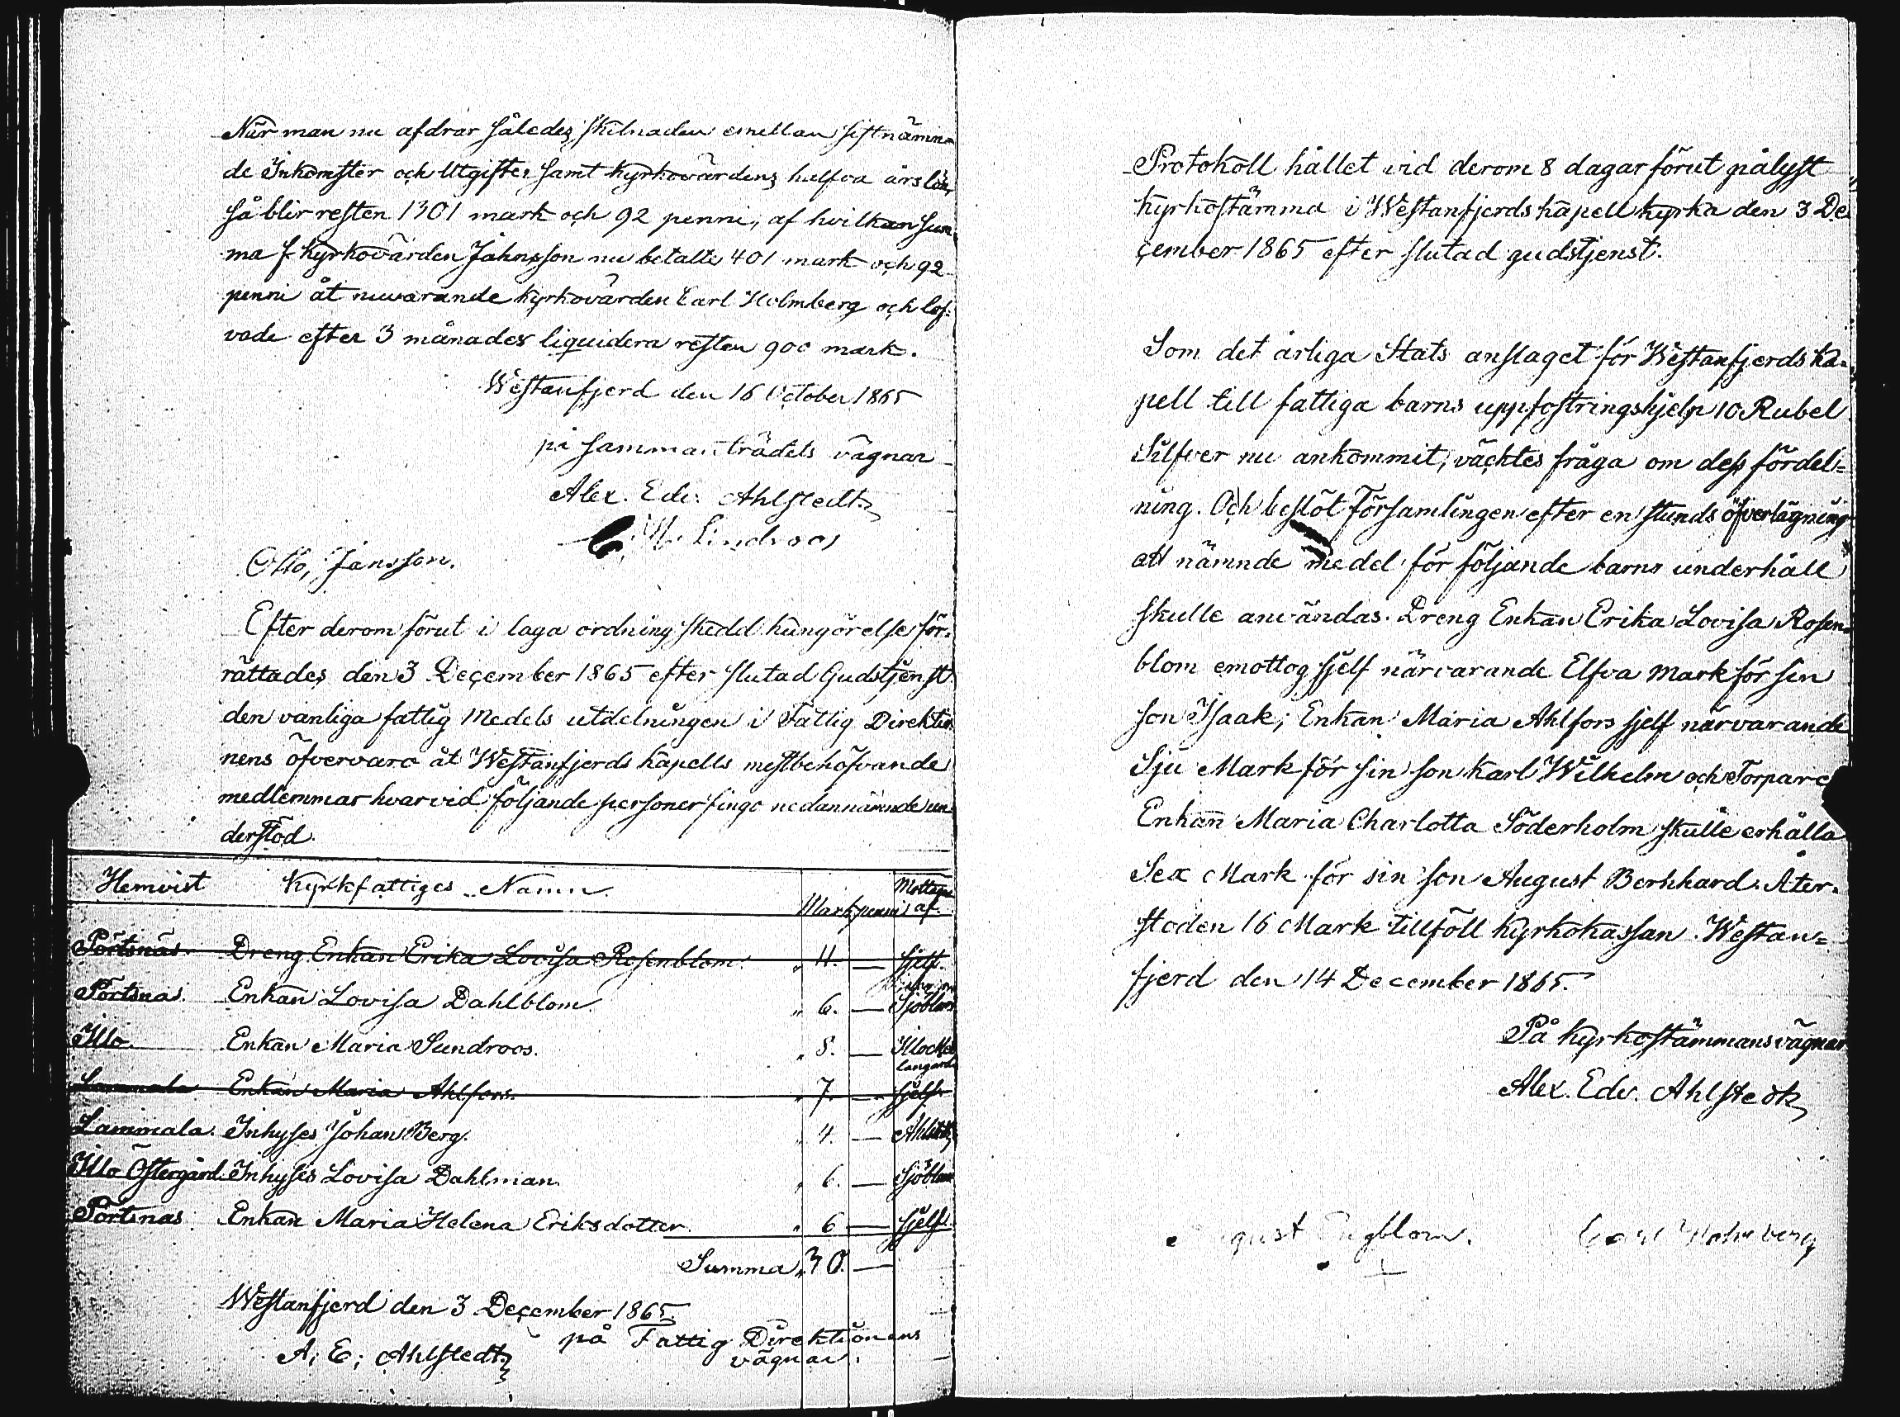 När man nu afdrar således skilnaden emellan sistnämn-
de Inkomster och Utgifter samt kyrkovärdens halfva års lön,
så blir resten 1301 mark och 92 penni, af hvilken sum-
ma f. kyrkovärden Jahnsson nu betalte 401 mark och 92
penni åt nuvarande kyrkovärden Carl Holmberg och lof-
vade efter 3 månader liquidera resten 900 mark.
Westanfjerd den 16 October 1865
på sammanträdets vägnar
Alex. Edv. Ahlstedt
Lindroos
Otto, Jansson.
Efter derom förut i laga ordning skedd kungörelse för-
rättades den 3 December 1865 efter slutad Gudstjenst
den vanliga fattig Medels utdelningen i Fattig Direktio-
nens öfvervaro åt Westanfjerds kapells mestbehöfvande
medlemmar hvarvid följande personer fingo nedannämnde un-
derstöd.
Hemvist Kyrkfattiges Namn Mark penni Mottagne af.
Pörtsnäs. Dreng Enkan Erika Lovisa Rosenblom. " 11. — sjelf.
Pörtsnäs. Enkan Lovisa Dahlblom " 6. — Sjöblom
Illo. Enkan Maria Sundroos. " 8. — Klockar
langård
Lammala Enkan Maria Ahlfors. " 7. — sjelf
Lammala. Inhyses Johan Berg. " 4. — Ahlstedt
Illo Östergård. Inhyses Lovisa Dahlman. " 6. — Sjöblom
Pörtsnäs. Enkan Maria Helena Eriksdotter. " 6 — sjelf.
Summa " 30. —
Westanfjerd den 3 December 1865
på Fattig Direktionens
A. E. Ahlstedt vägnar.
Protokoll hållet vid derom 8 dagar förut pålyst
kyrkostämma i Westanfjerds kapell kyrka den 3 De-
cember 1865 efter slutad gudstjenst.
Som det årliga Stats anslaget för Westanfjerds ka-
pell till fattiga barns uppfostringshjelp 10 Rubel
Silfver nu ankommit, väcktes fråga om dess fördel-
ning. Och beslöt Församlingen efter en stunds öfverlägning
att nämnde medel för följande barns underhåll
skulle användas. Dreng Enkan Erika Lovisa Rosen-
blom emottog sjelf närvarande Elfva mark för sin
son Isaak; Enkan Maria Ahlfors sjelf närvarande
Sju Mark för sin son Karl Wilhelm och Torpare
Enkan Maria Charlotta Söderholm skulle erhålla
Sex Mark för sin son August Bernhard. Åter-
stoden 16 Mark tillföll kyrkokassan. Westan-
fjerd den 14 December 1865.
På kyrkostämmans vägnar
Alex. Edv. Ahlstedt
August Engblom. Carl Holmberg